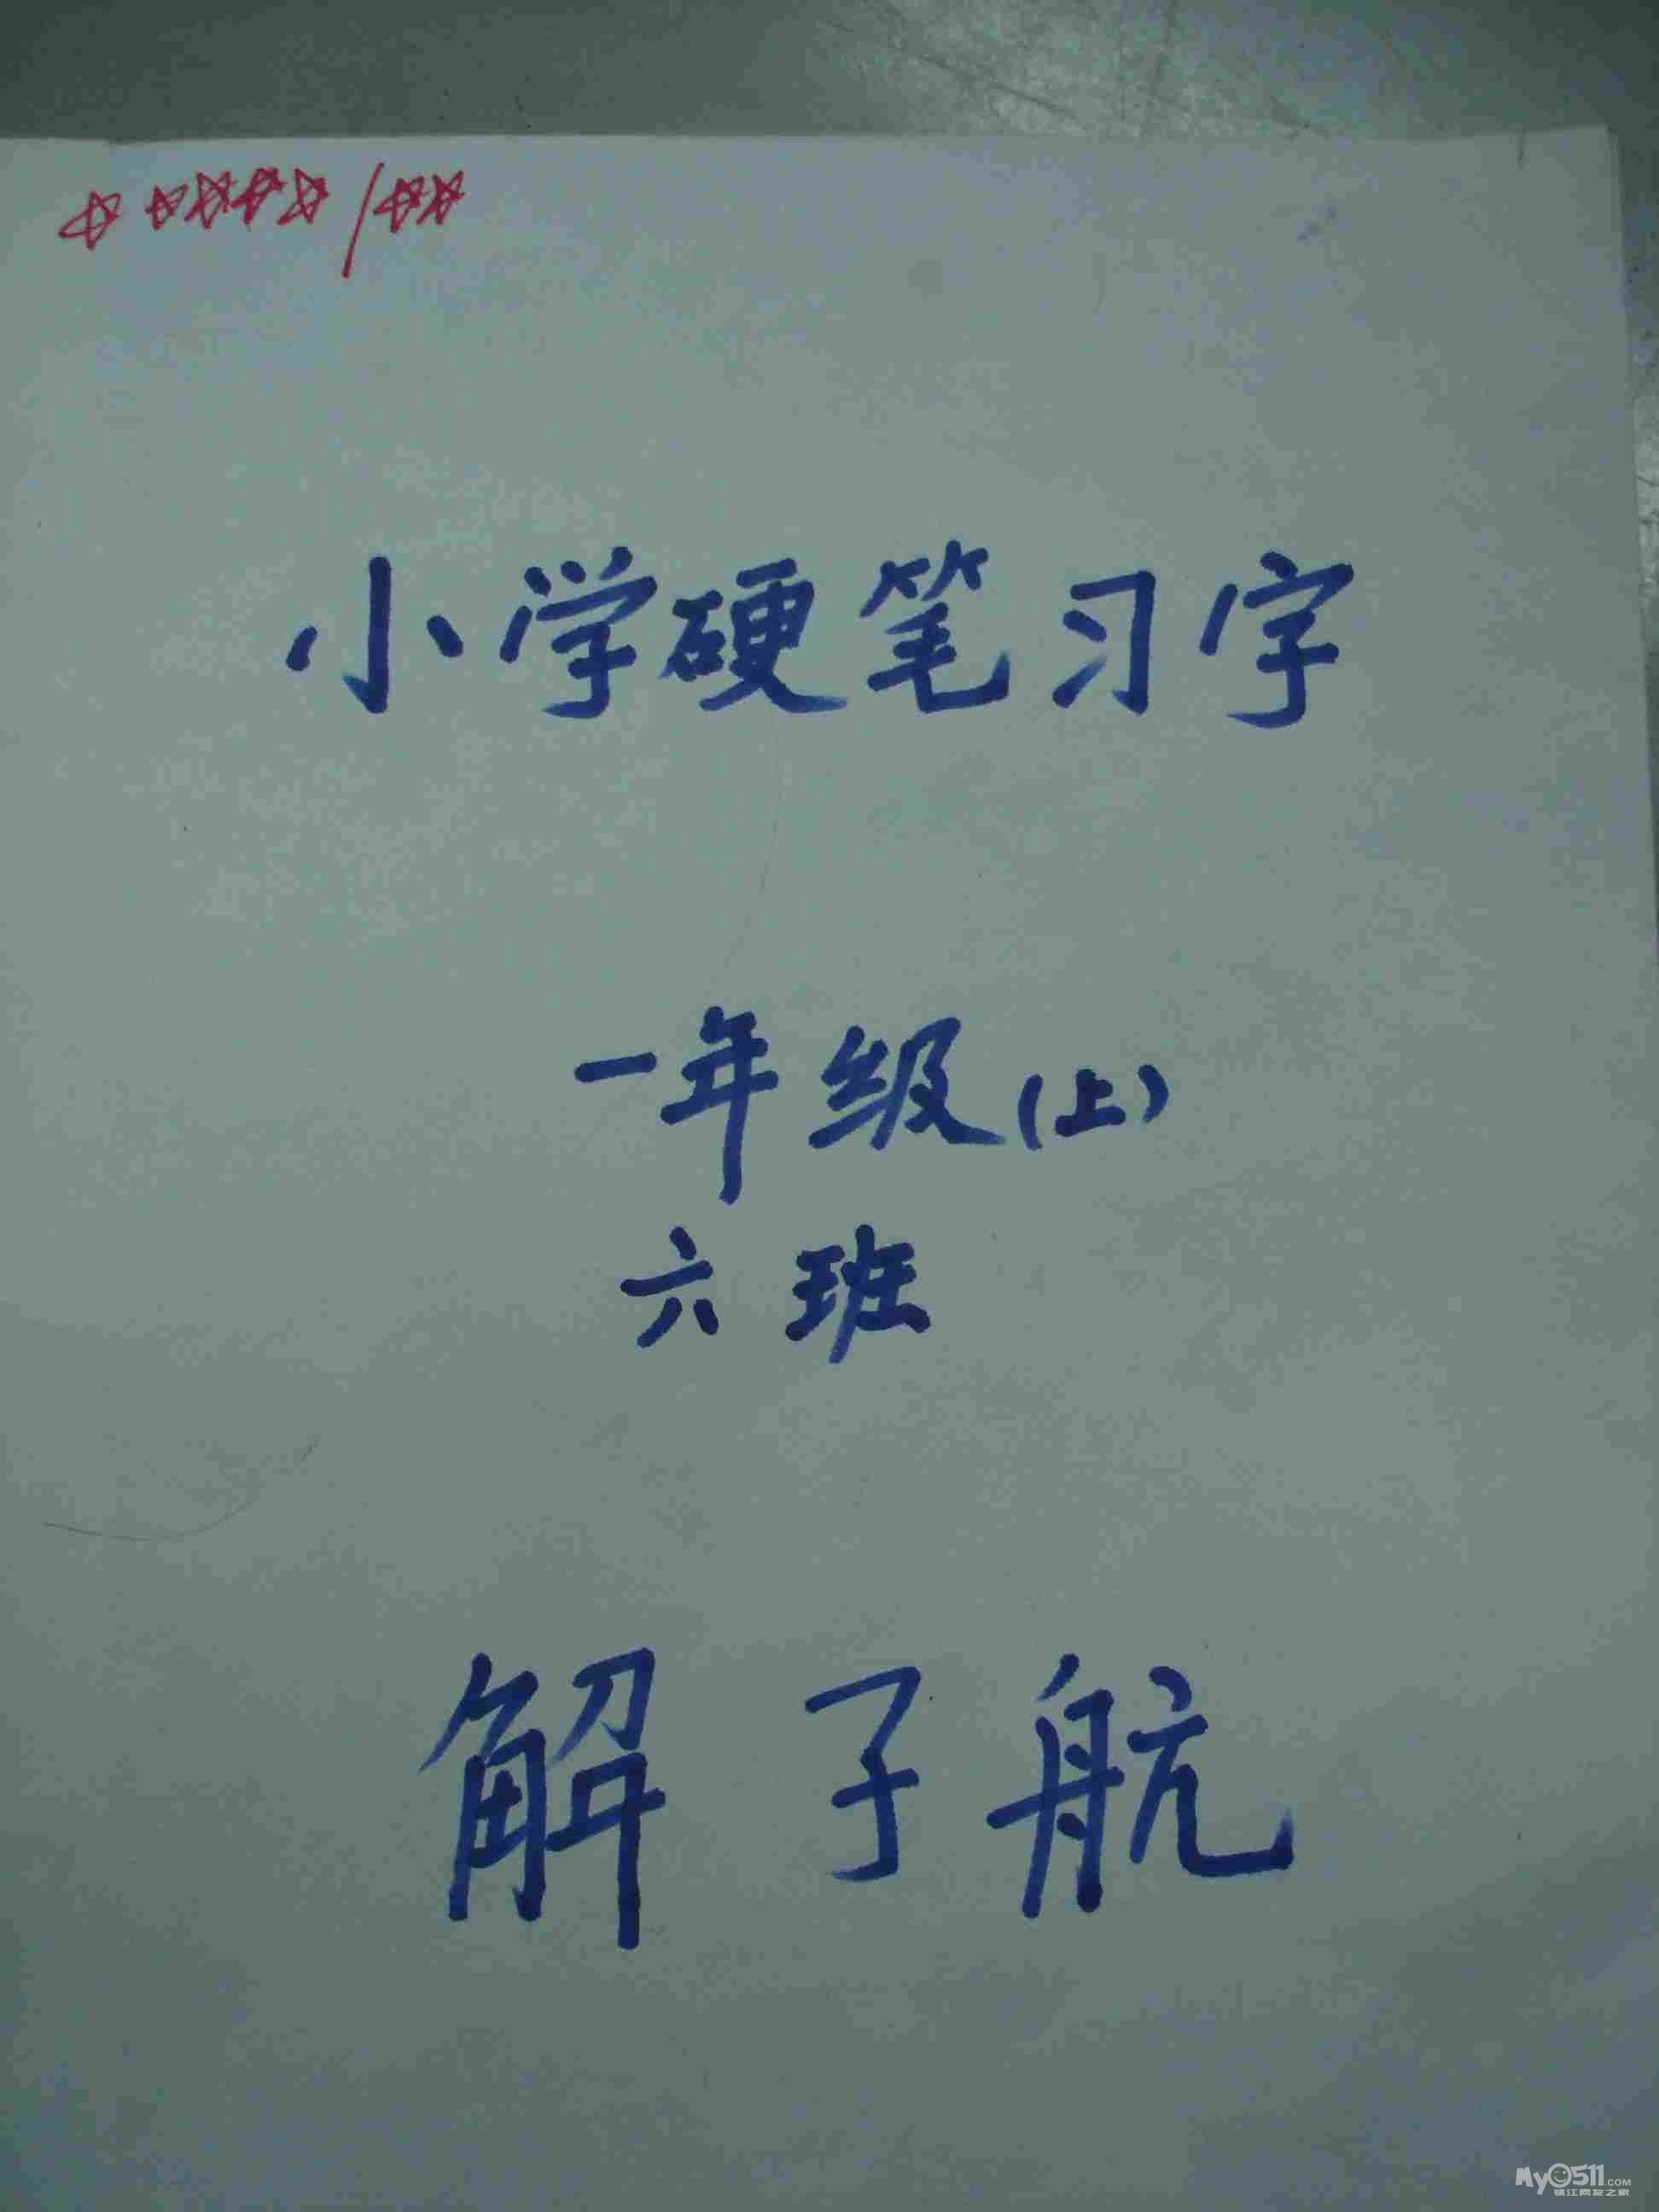 小学硬笔习字
一年级(上)
六班
解子航
My0511.COM
镇江网友之家